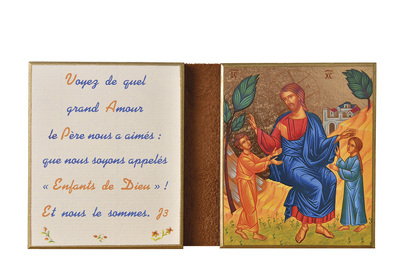 Voyez de quel
grand Amour
le Père nous a aimés :
que nous soyons appelés
« Enfants de Dieu » !
Et nous le sommes. J3
IC XC